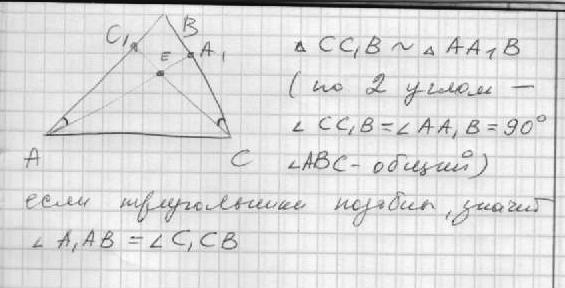 C₁ B
E A₁
A C
△ CC₁B ~ △ AA₁B
(по 2 углом —
∠ CC₁B = ∠ AA₁B = 90°
∠ABC - общий)
если треугольники подобны, значит
∠ A₁AB = ∠ C₁CB